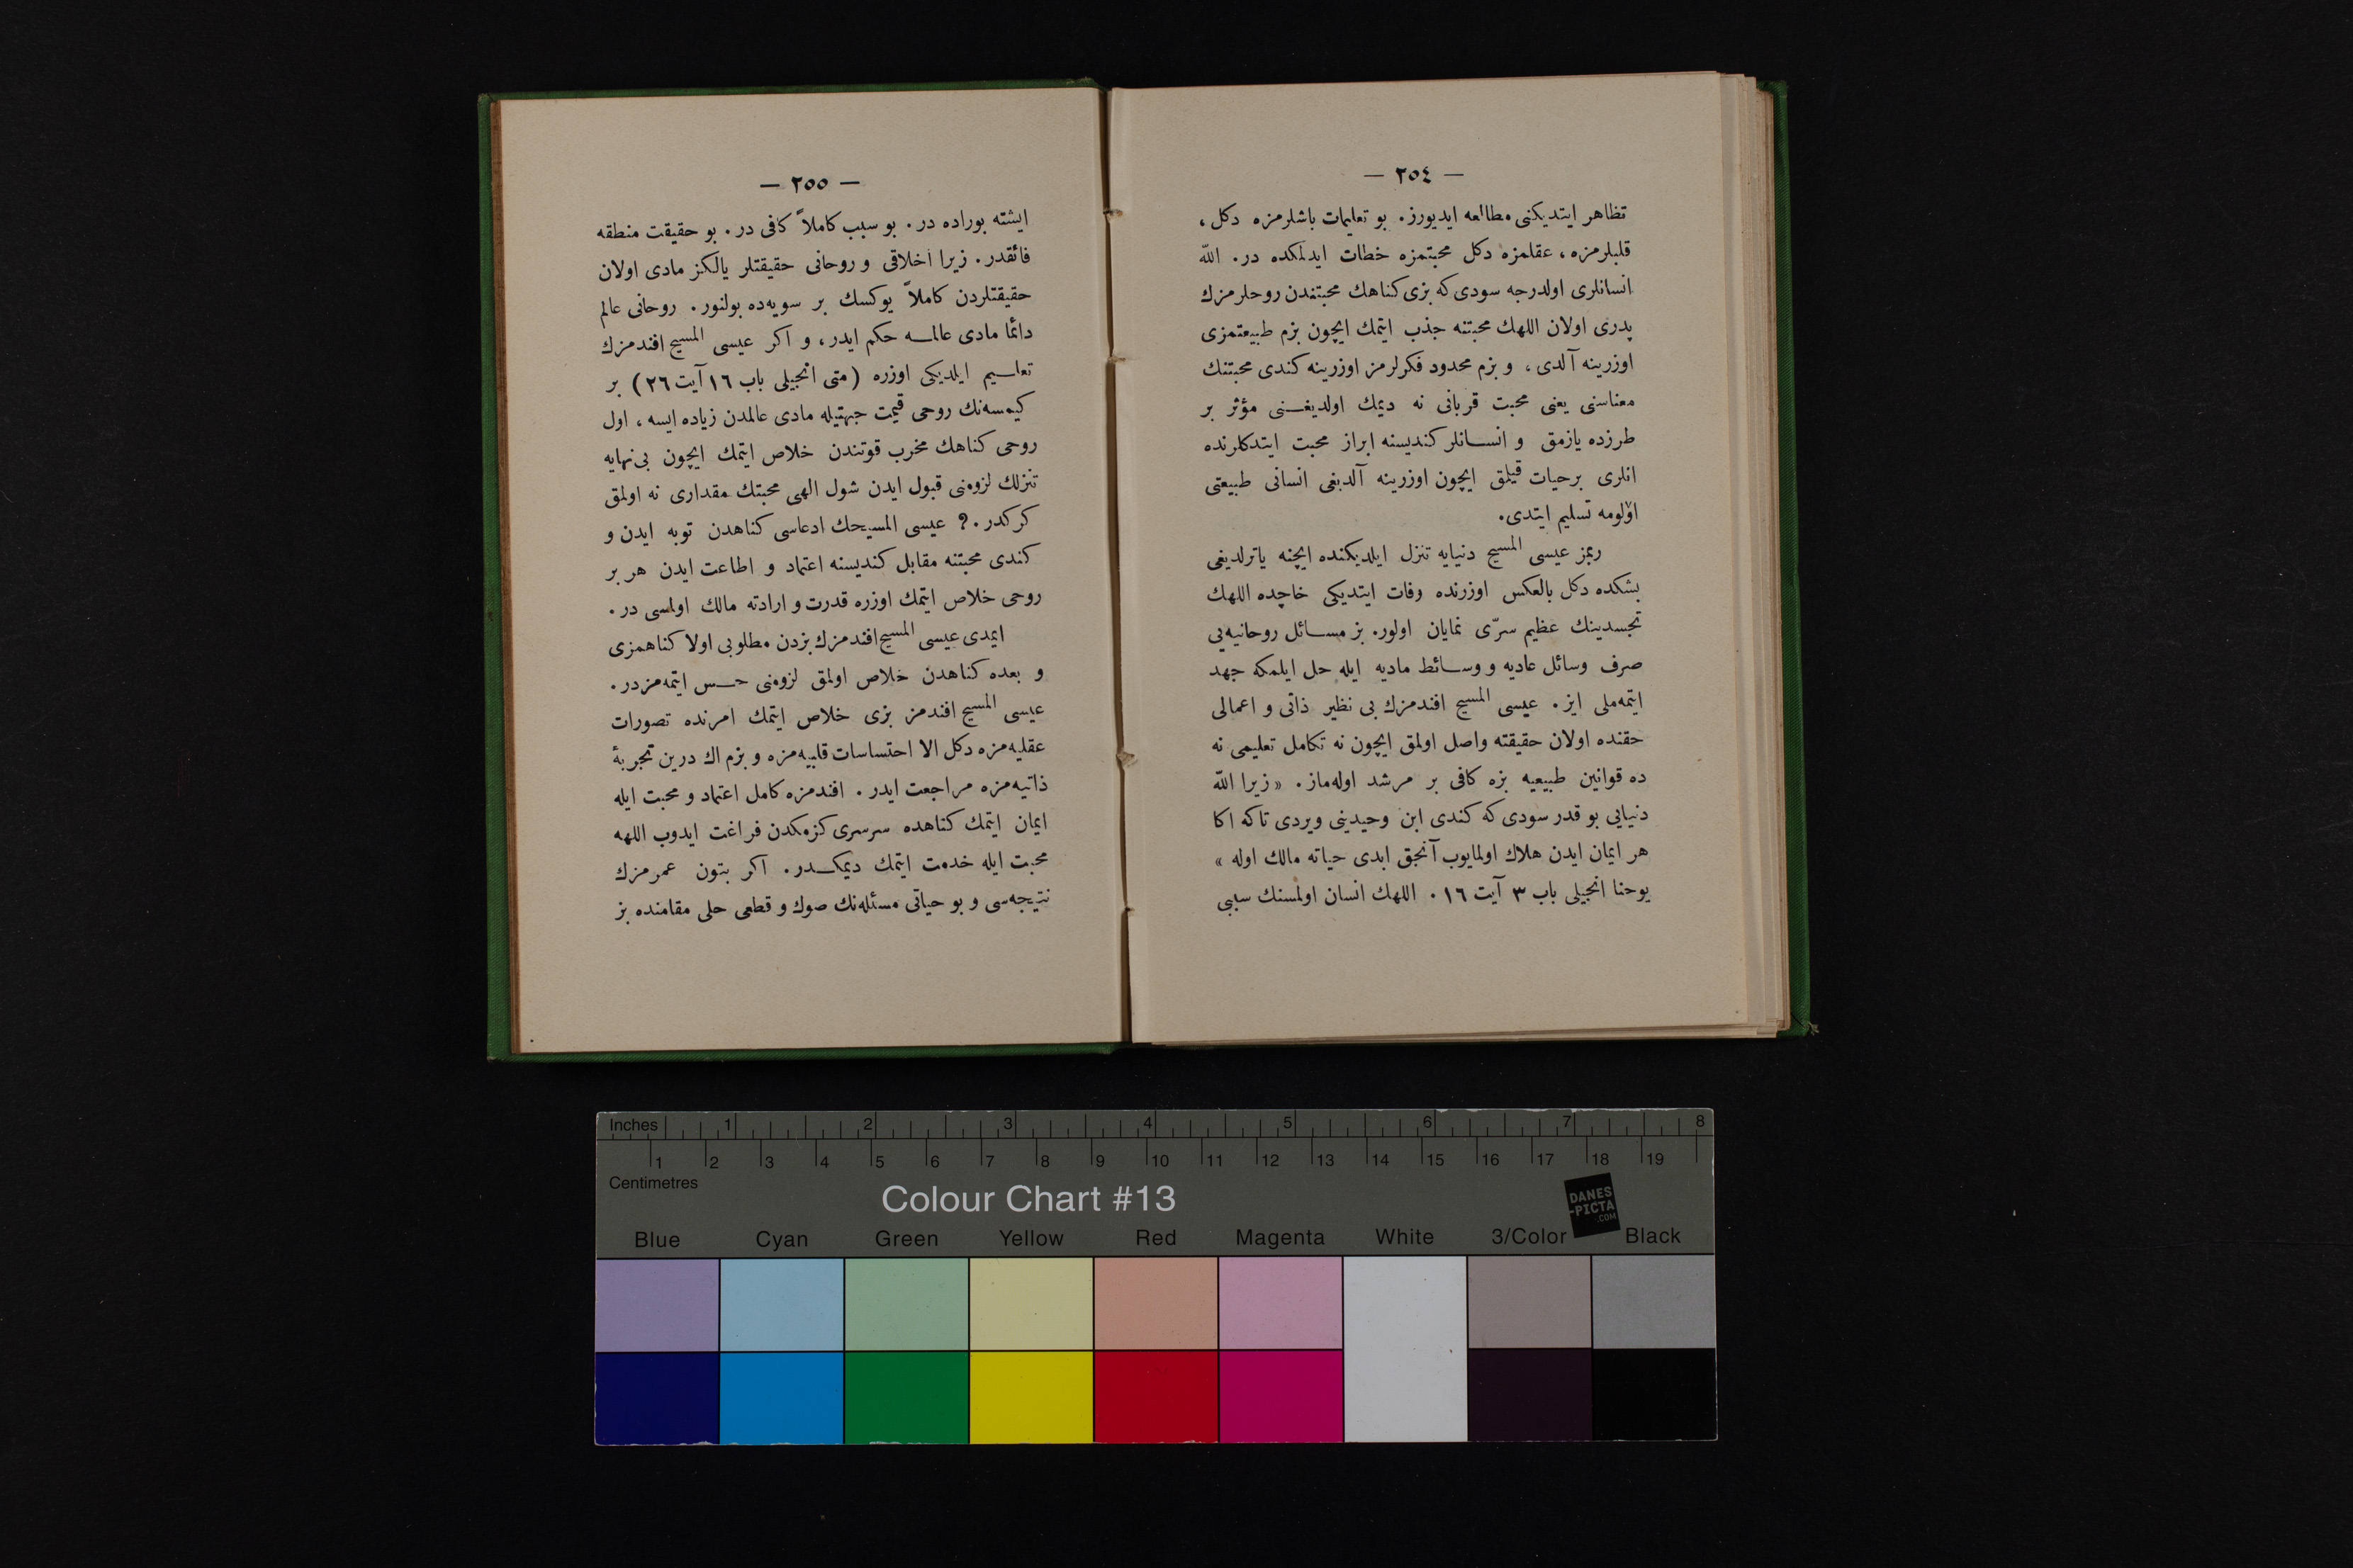 — ٢٥٤ —
تظاهر ایتدیکنی مطالعه ایدیورز. بو تعلیمات باشلرمزه دکل،
قلبلرمزه، عقلمزه دکل محبتمزه خطات ایدلمکده در. اللّه
انسانلری اولدرجه سودی که بزی کناهك محبتندن روحلرمزك
پدری اولان اللهك محبتنه جذب ایتمك ایچون بزم طبیعتمزی
اوزرینه آلدی، و بزم محدود فکرلرمز اوزرینه کندی محبتنك
معناسنی یعنی محبت قربانی نه دیمك اولدیغنی مؤثر بر
طرزده یازمق و انسانلر کندیسنه ابراز محبت ایتدکلرنده
انلری برحیات قیلمق ایچون اوزرینه آلدیغی انسانی طبیعتی
اولومه تسلیم ایتدی.
ربمز عیسی المسیح دنیایه تنزل ایلدیکنده ایچنه یاترلدیغی
بشکده دکل بالعکس اوزرنده وفات ایتدیکی خاچده اللهك
تجسدینك عظیم سرّی نمایان اولور. بز مسائل روحانیه‌یی
صرف وسائل عادیه و وسائط مادیه ایله حل ایلمکه جهد
ایتمه‌ملی ایز. عیسی المسیح افندمزك بی نظیر ذاتی و اعمالی
حقنده اولان حقیقته واصل اولمق ایچون نه تکامل تعلیمی نه
ده قوانین طبیعیه بزه کافی بر مرشد اوله‌ماز. «زیرا اللّه
دنیایی بو قدر سودی که کندی ابن وحیدینی ویردی تاکه اکا
هر ایمان ایدن هلاك اولمایوب آنجق ابدی حیاته مالك اوله»
یوحنا انجیلی باب ٣ آیت ١٦. اللهك انسان اولمسنك سببی
— ٢٥٥ —
ایشته بوراده در. بو سبب کاملاً کافی در. بو حقیقت منطقه
فائقدر. زیرا اخلاقی و روحانی حقیقتلر یالکز مادی اولان
حقیقتلردن کاملاً یوکسك بر سویه‌ده بولنور. روحانی عالم
دائما مادی عالمه حکم ایدر، و اکر عیسی المسیح افندمزك
تعلیم ایلدیکی اوزره (متی انجیلی باب ١٦ آیت ٢٦) بر
کیمسه‌نك روحی قیمت جهتیله مادی عالمدن زیاده ایسه، اول
روحی کناهك مخرب قوتندن خلاص ایتمك ایچون بی‌نهایه
تنزلك لزومنی قبول ایدن شول الهی محبتك مقداری نه اولمق
کرکدر.؟ عیسی المسیحك ادعاسی کناهدن توبه ایدن و
کندی محبتنه مقابل کندیسنه اعتماد و اطاعت ایدن هر بر
روحی خلاص ایتمك اوزره قدرت و ارادته مالك اولمسی در.
ایمدی عیسی المسیح افندمزك بزدن مطلوبی اولا کناهمزی
و بعده کناهدن خلاص اولمق لزومنی حس ایتمه‌مزدر.
عیسی المسیح افندمز بزی خلاص ایتمك امرنده تصورات
عقلیه‌مزه دکل الا احتساسات قلبیه‌مزه و بزم اك درین تجربهٔ
ذاتیه‌مزه مراجعت ایدر. افندمزه کامل اعتماد و محبت ایله
ایمان ایتمك کناهده سرسری کزمکدن فراغت ایدوب اللهه
محبت ایله خدمت ایتمك دیمکدر. اکر بتون عمرمزك
نتیجه‌سی و بو حیاتی مسئله‌نك صوك و قطعی حلی مقامنده بز
Inches 1 2 3 4 5 6 7 8
1 2 3 4 5 6 7 8 9 10 11 12 13 14 15 16 17 18 19
Centimetres
Colour Chart #13
DANES
-PICTA
.COM
Blue Cyan Green Yellow Red Magenta White 3/Color Black